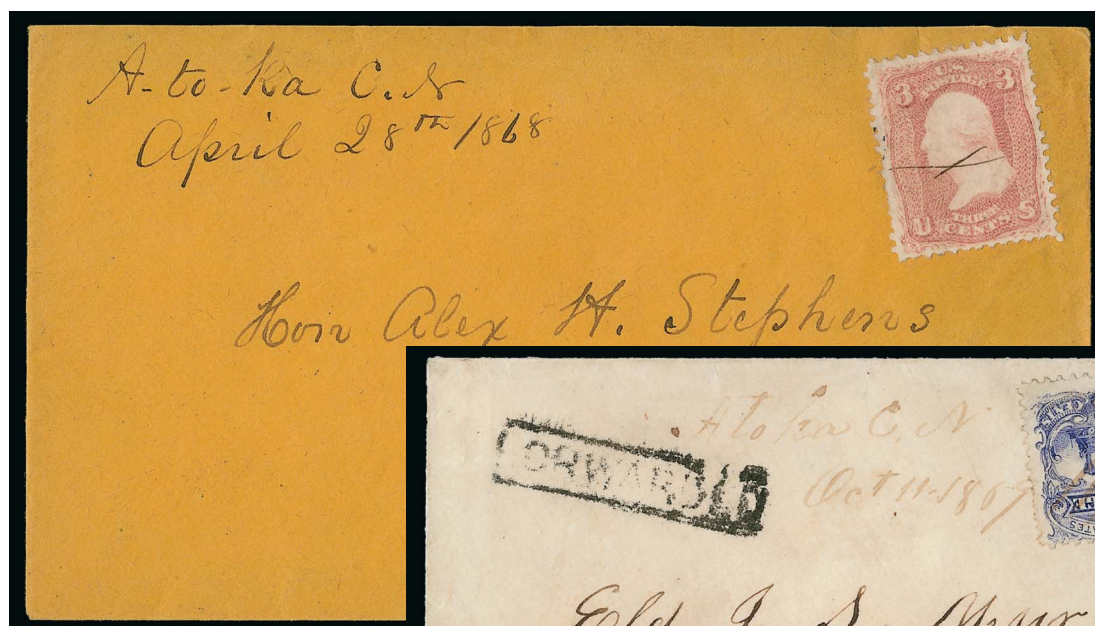 A-to-ka C. N
April 28th 1868
U.S.
POSTAGE
3 3
THREE
U CENTS S
Hon Alex H. Stephens
FORWARDED
Atoka C. N
Oct 11-1869
Eld J. S. Mur